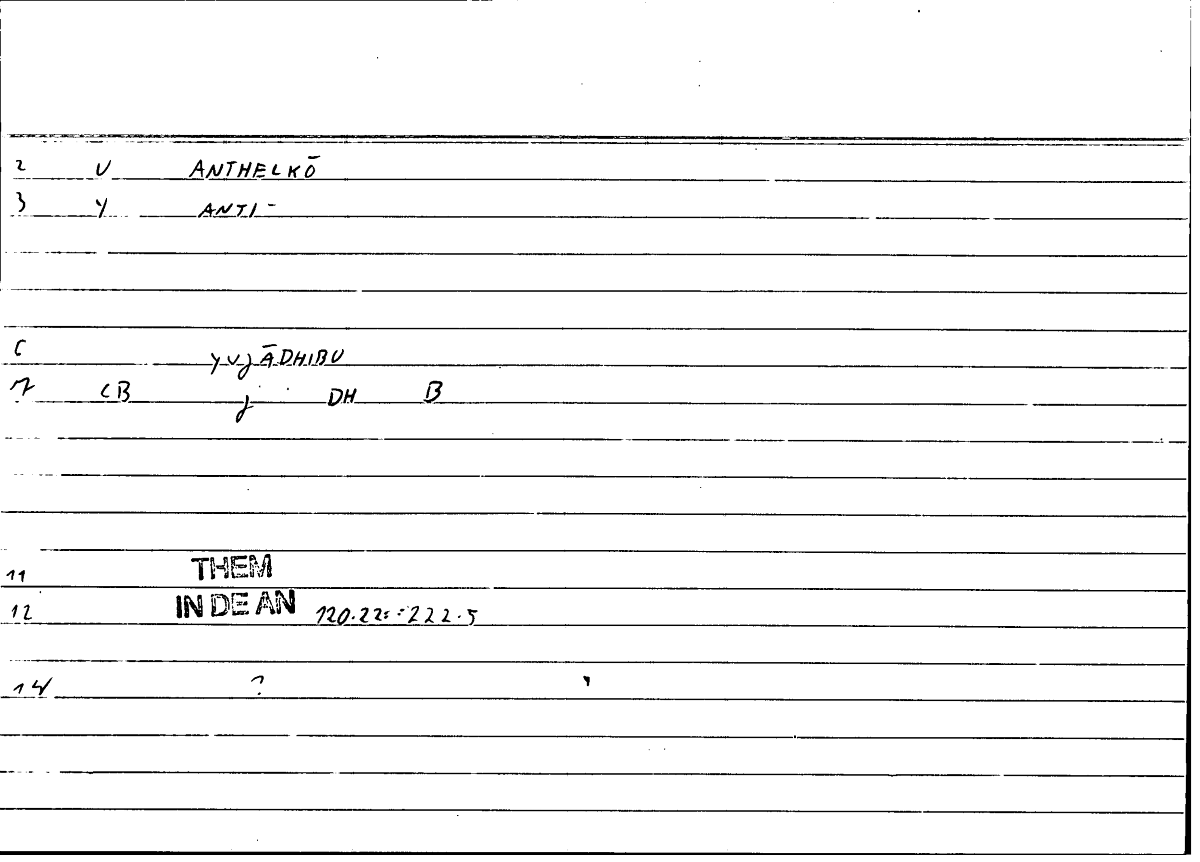 2 V ANTHELKŌ
3 Y ANTI-
C yuj ĀDHIBU
CB j DH B
11 THEM
12 IN DE AN 120.22::222.5
14 ? '